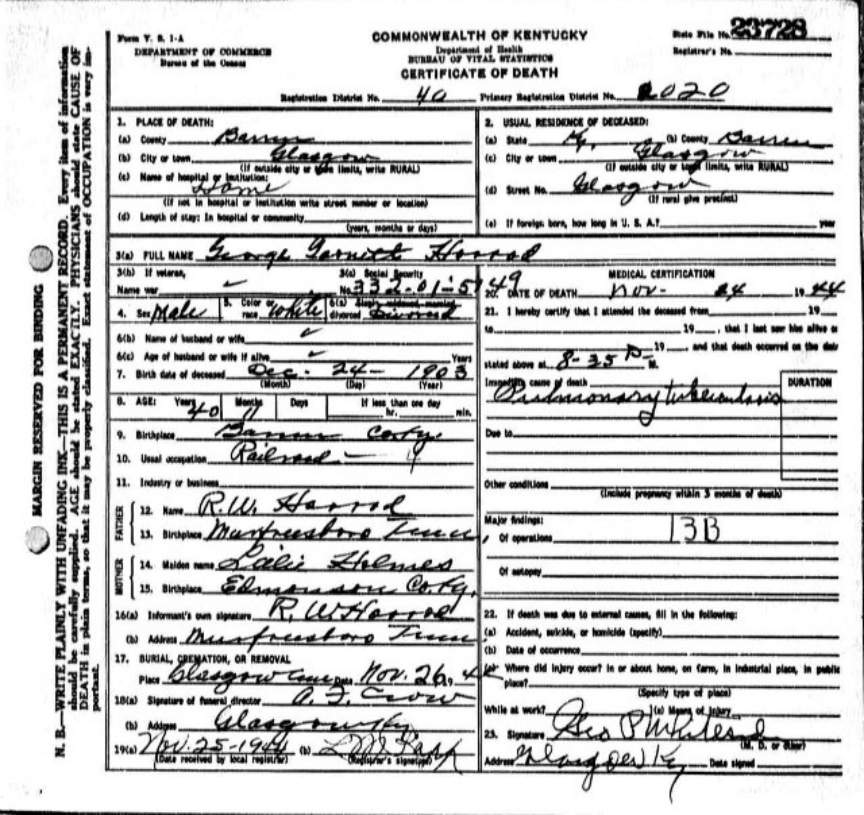 MARGIN RESERVED FOR BINDING
N. B.—WRITE PLAINLY WITH UNFADING INK—THIS IS A PERMANENT RECORD. Every item of information
should be carefully supplied. AGE should be stated EXACTLY. PHYSICIANS should state CAUSE OF
DEATH in plain terms, so that it may be properly classified. Exact statement of OCCUPATION is very im-
portant.
Form V. S. 1-A
DEPARTMENT OF COMMERCE
Bureau of the Census
COMMONWEALTH OF KENTUCKY
Department of Health
BUREAU OF VITAL STATISTICS
CERTIFICATE OF DEATH
State File No. 23728
Registrar's No.
Registration District No. 40 Primary Registration District No. 2020
1. PLACE OF DEATH:
(a) County Barren
(b) City or town Glasgow
(If outside city or town limits, write RURAL)
(c) Name of hospital or institution:
Home
(If not in hospital or institution write street number or location)
(d) Length of stay: In hospital or community
(years, months or days)
2. USUAL RESIDENCE OF DECEASED:
(a) State Ky. (b) County Barren
(c) City or town Glasgow
(If outside city or town limits, write RURAL)
(d) Street No. Glasgow
(If rural give precinct)
(e) If foreign born, how long in U. S. A.? year
3(a) FULL NAME George Garnett Harrod
3(b) If veteran,
Name war
3(c) Social Security
No. 332-01-5749
4. Sex Male 5. Color or race White 6(a) Single, widowed, married, divorced Divorced
6(b) Name of husband or wife
6(c) Age of husband or wife if alive Years
7. Birth date of deceased Dec. 24- 1903
(Month) (Day) (Year)
8. AGE: Years 40 Months 11 Days If less than one day
hr. min.
9. Birthplace Barren Co. Ky.
10. Usual occupation Railroad
11. Industry or business
FATHER
12. Name R.W. Harrod
13. Birthplace Murfreesboro Tenn
MOTHER
14. Maiden name Holmes
15. Birthplace Edmonson Co. Ky.
16(a) Informant's own signature R. W Harrod
(b) Address Murfreesboro Tenn
17. BURIAL, CREMATION, OR REMOVAL
Place Glasgow Date Nov. 26, 44
18(a) Signature of funeral director A. F. Crow
(b) Address Glasgow Ky
19(a) Nov. 25-1944 (b)
(Date received by local registrar) (Registrar's signature)
MEDICAL CERTIFICATION
20. DATE OF DEATH Nov- 24 1944
21. I hereby certify that I attended the deceased from 19
to 19 , that I last saw him alive o
19 , and that death occurred on the date
stated above at 8-35 P- M.
Immediate cause of death DURATION
Pulmonary tuberculosis
Due to
Other conditions
(Include pregnancy within 3 months of death)
Major findings:
Of operations 13B
Of autopsy
22. If death was due to external causes, fill in the following:
(a) Accident, suicide, or homicide (specify)
(b) Date of occurrence
(c) Where did injury occur? in or about home, on farm, in industrial place, in public
place?
(Specify type of place)
While at work? (e) Means of Injury
23. Signature Geo P
(M. D. or Other)
Address Glasgow Ky Date signed